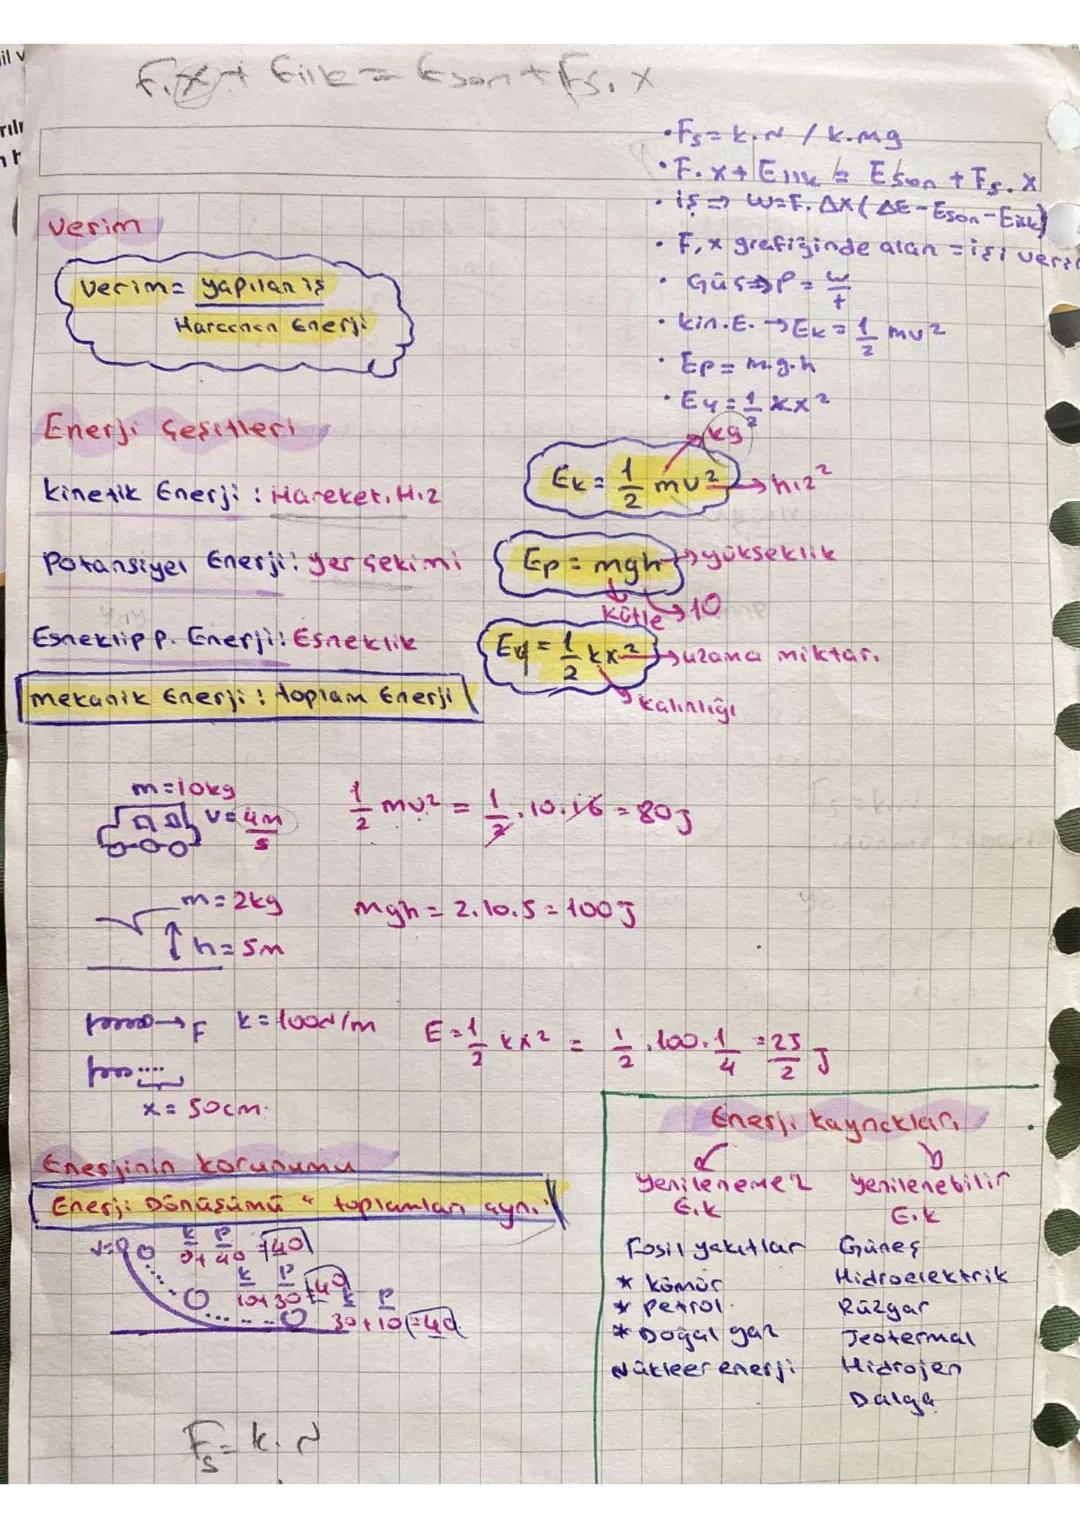 F.x + Eilk = Eson + Fs.x
• Fs = k.N / k.mg
• F.x + Eilk = Eson + Fs.x
• iş ⇒ W=F.Δx (ΔE-Eson-Eilk)
• F,x grafiğinde alan = işi verir
• Güç ⇒ P = w/t
• kin.E. → Ek = 1/2 mv²
• Ep = m.g.h
• Ey = 1/2 kx²
Verim
Verim = yapılan iş
Harcanan Enerji
Enerji Çeşitleri
Kinetik Enerji : Hareket, Hız
Ek = 1/2 mv²
kg
hız²
Potansiyel Enerji : yer çekimi
Ep = mgh
yükseklik
kütle
10
Esneklip p. Enerji : Esneklik
Ey = 1/2 kx²
uzama miktarı
kalınlığı
mekanik Enerji : toplam Enerji
m=10kg
V=4m/s
1/2 mv² = 1/2 . 10.16 = 80J
m=2kg
h=5m
mgh = 2.10.5 = 100J
F
k=100N/m
E=1/2 kx² = 1/2 .100.1/4 =25/2 J
x=50cm.
Enerjinin korunumu
Enerji Dönüşümü " toplamları aynı."
V=0
K P
0+40=40
K P
10+30=40
K P
30+10=40
Enerji kaynakları
Yenilenemez E.k
Fosil yakıtlar
* Kömür
* Petrol.
* Doğal gaz
Nükleer enerji
Yenilenebilir E.k
Güneş
Hidroelektrik
Rüzgar
Jeotermal
Hidrojen
Dalga
Fs = k.N